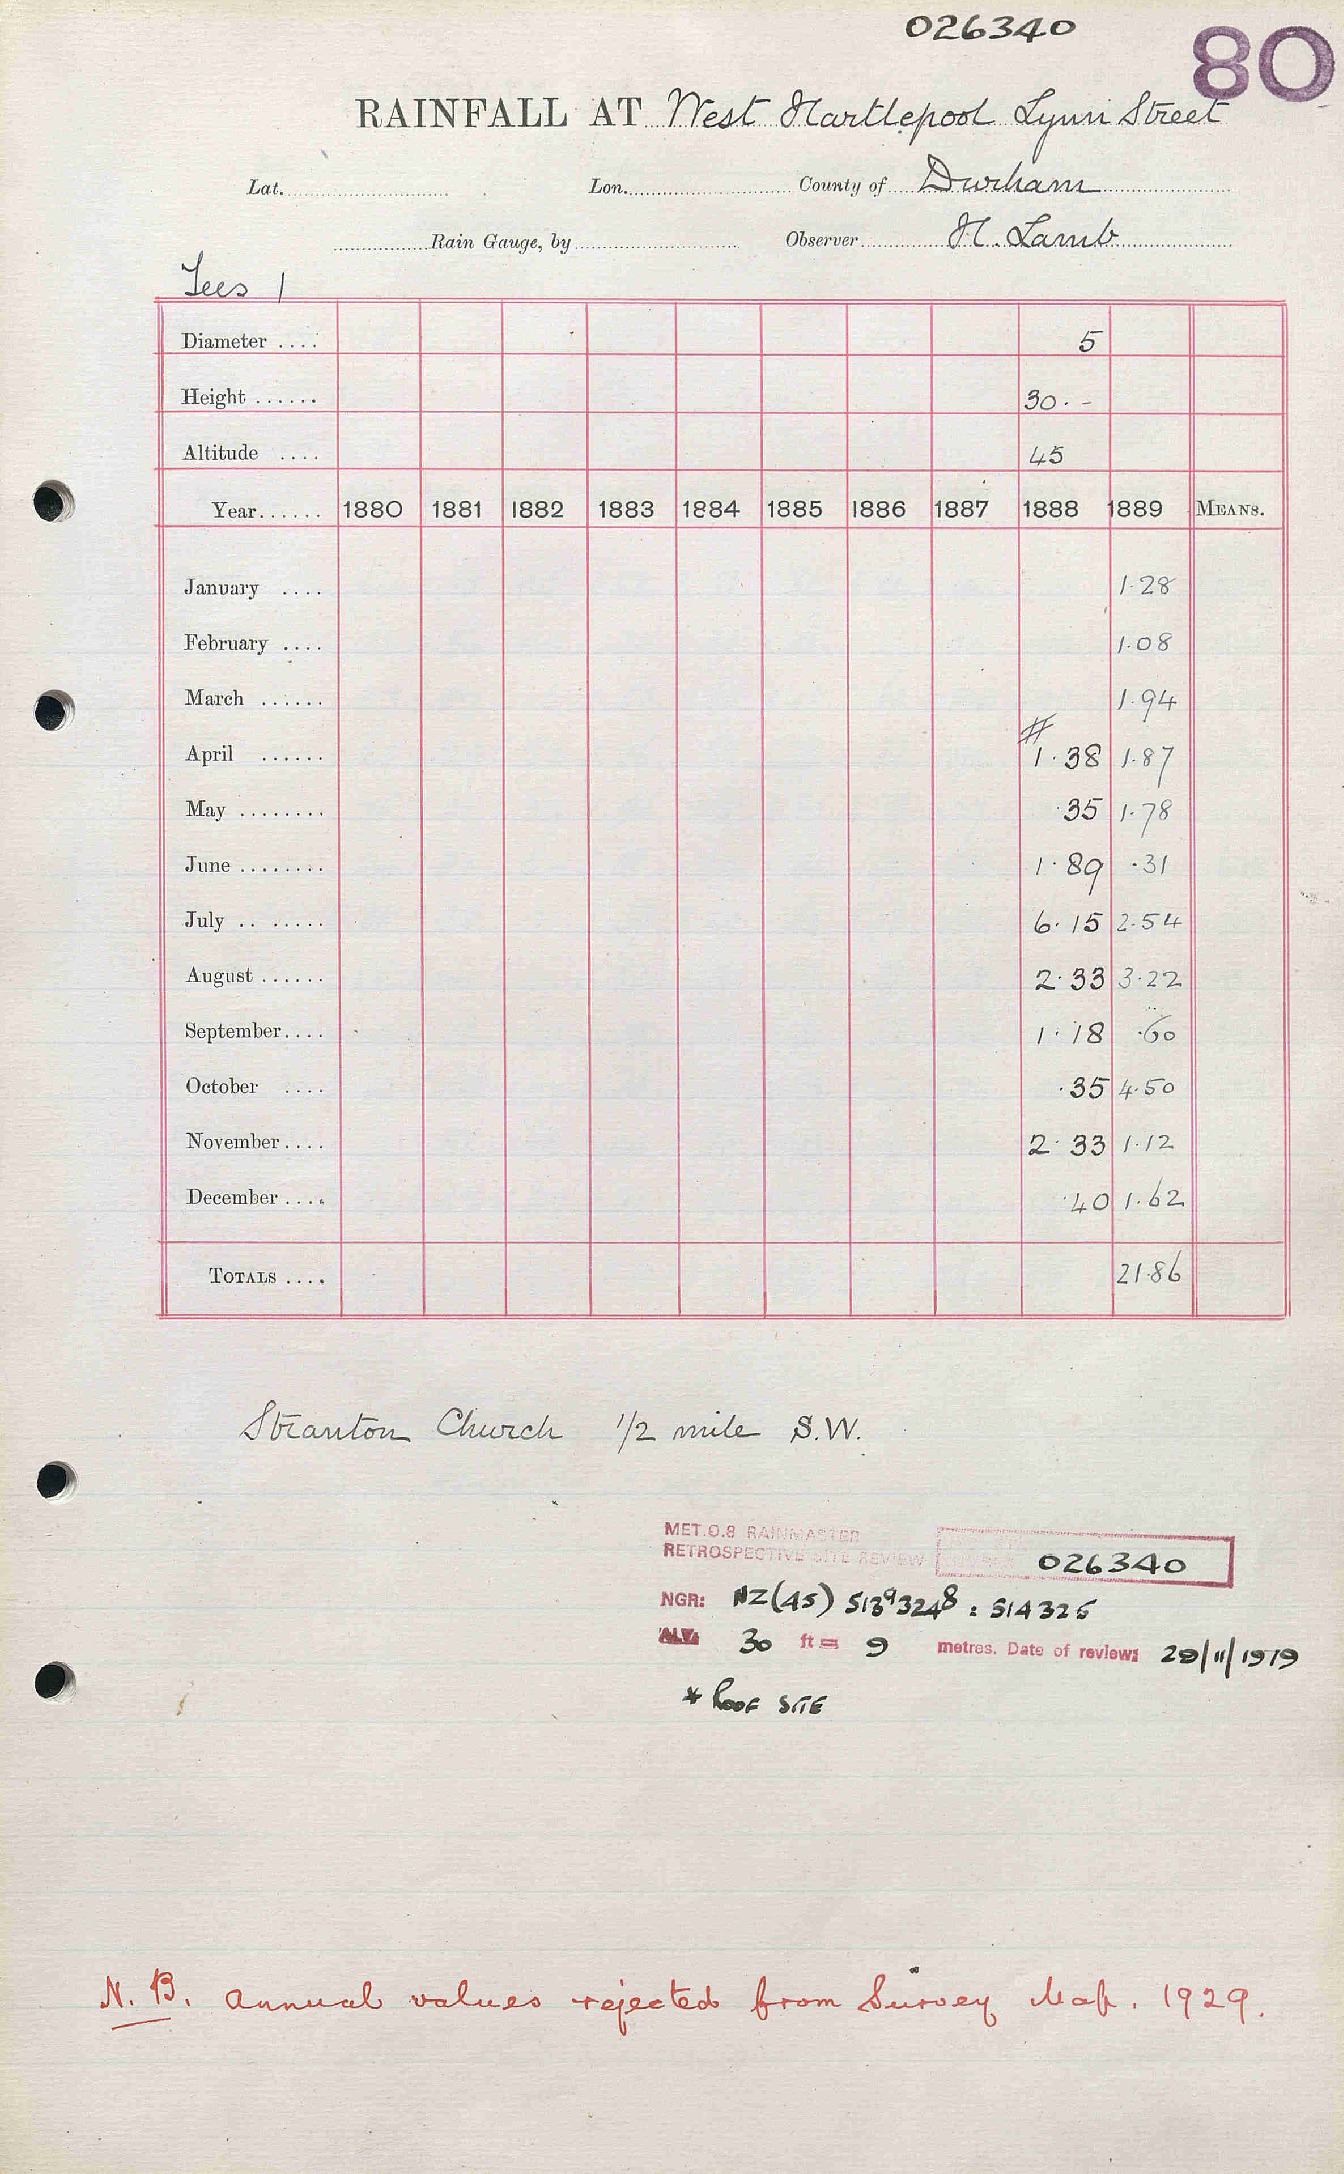 026340
80
RAINFALL AT West Hartlepool Lynn Street
Lat. Lon. County of Durham
Rain Gauge, by Observer H. Lamb
Tees 1
Diameter .... 5
Height ...... 30. -
Altitude .... 45
Year...... 1880 1881 1882 1883 1884 1885 1886 1887 1888 1889 MEANS.
January .... 1.28
February .... 1.08
March ...... 1.94
#
April ...... 1.38 1.87
May ........ .35 1.78
June ........ 1.89 .31
July .. ..... 6.15 2.54
August ...... 2.33 3.22
September.... 1.18 .60
October .... .35 4.50
November.... 2.33 1.12
December .... .40 1.62
TOTALS .... 21.86
Stranton Church 1/2 mile S.W.
MET.O.8 RAINMASTER
RETROSPECTIVE SITE REVIEW 026340
NGR: NZ(45) 51393248 : 514325
ALT: 30 ft = 9 metres. Date of review: 29/11/1979
* ROOF SITE
N.B. Annual values rejected from Survey Map. 1929.